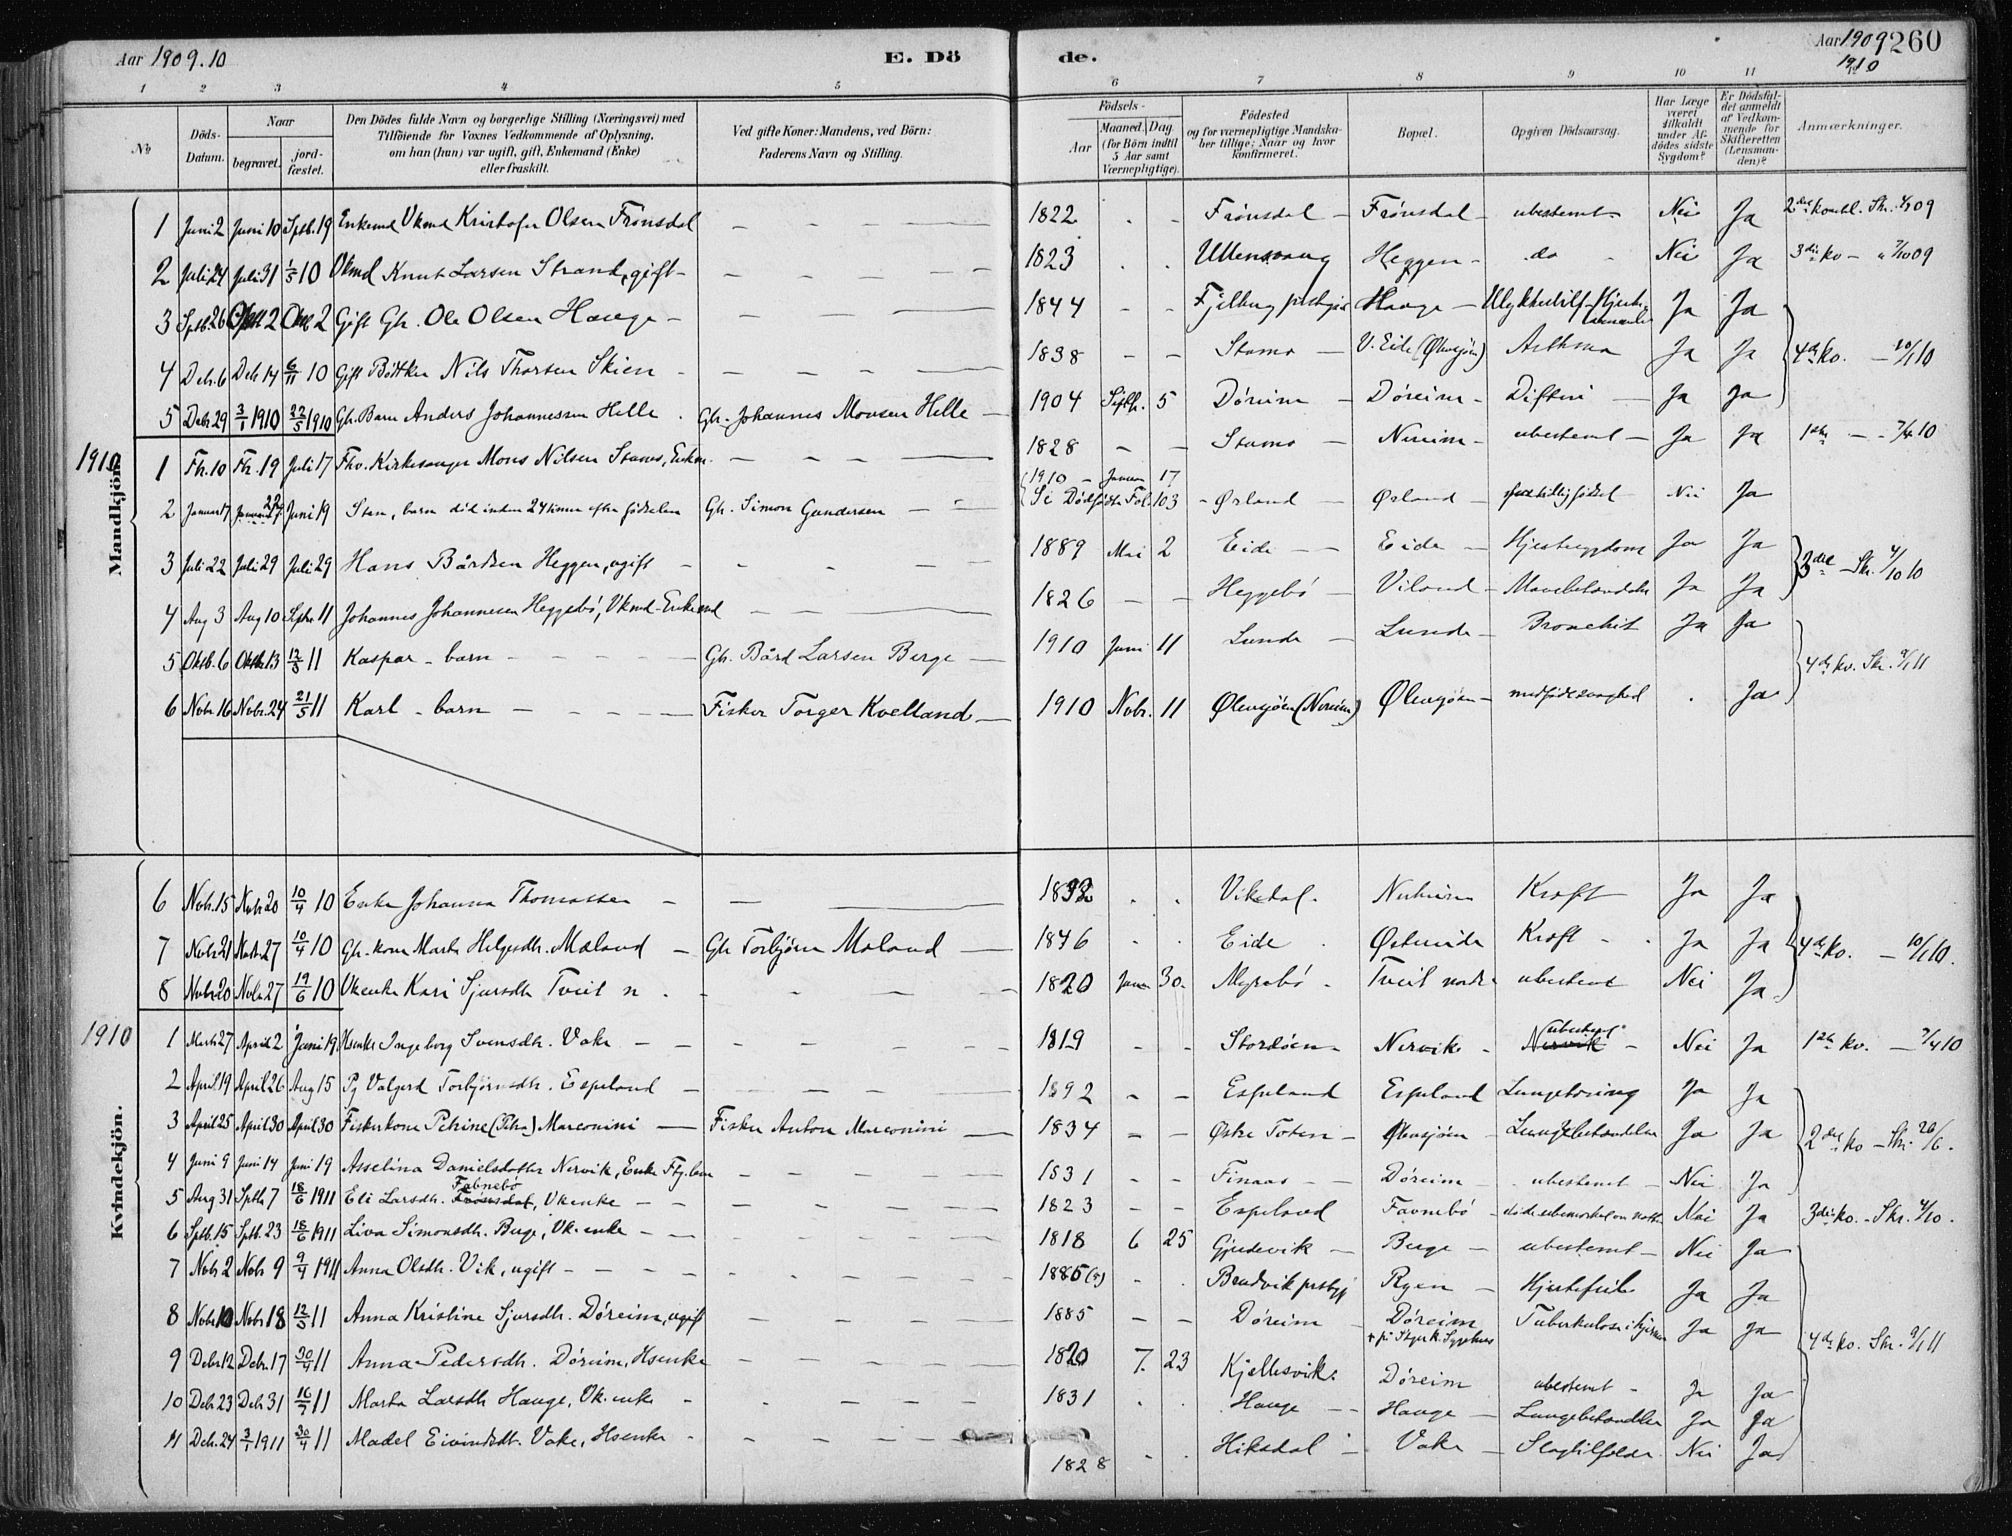 Aar 1909.10 E. Dö de. Aar 1909 1910 260
1 2 3 4 5 6 7 8 9 10 11
No Döds-Datum. Naar begravet. jordfæstet. Den Dödes fulde Navn og borgerlige Stilling (Næringsvei) med Tilföiende for Voxnes Vedkommende af Oplysning, om han (hun) var ugift, gift, Enkemand (Enke) eller fraskilt. Ved gifte Koner: Mandens, ved Börn: Faderens Navn og Stilling. Födsels- Aar Maaned. Dag. (for Börn indtil 5 Aar samt Værnepligtige). Födested og for værnepligtige Mandskaber tillige: Naar og hvor konfirmeret. Bopæl. Opgiven Dödsaarsag. Har Læge været tilkaldt under Afdödes sidste Sygdom? Er Dödsfaldet anmeldt af Vedkommende for Skifteretten (Lensmanden)? Anmærkninger.
Mandkjön.
1 Juni 2 Juni 10 Septb. 19 Enkemd Vkmd Kristofer Olsen Frönsdal 1822 Frönsdal Frönsdal ubestemt Nei Ja
2 Juli 24 Juli 31 1/5 10 Vkmd Knut Larsen Strand, gift 1823 Ullensvang Heggen do Nei Ja
3 Septb. 26 Oktb 2 Oktb 2 Gift Gbr. Ole Olsen Hauge 1844 Hauge Ja Ja
4 Debr. 6 Debr 14 6/11 10 Gift Bøtker Nils Thorsen Skien 1838 Stamo V. Eide (Ølensjøen) Asthma Ja Ja 4de kv. 10/1 10
5 Debr 29 3/1 1910 22/5 1910 Gbr. Barn Anders Johannesen Helle Gbr. Johannes Monsen Helle 1904 Septb. 5 Döreim Döreim Difteri Ja Ja
1910
1 Fb. 10 Fb. 19 Juli 17 Fhv. Kirkesanger Mons Nilsen Stamo, Enkm. 1828 Stamo Nereim ubestemt Ja Ja 1ste 7/4 10
2 Januar 17 Januar 22 Juni 19 Sten, barn död inden 24 timer efter födselen Gbr. Simon Gundersen 1910 Januar 17 Se Dödfödte Fol. 103 Ørland Ørland Nei Ja
3 Juli 22 Juli 29 Juli 29 Hans Bårdsen Heggen, ugift 1889 Mai 2 Eide Eide Hjertesygdom Ja Ja 3die Skr. 4/10 10
4 Aug 3 Aug 10 Septbr 11 Johannes Johannesen Heggebö, Vkmd Enkemd 1826 Heggebö Viland Ja Ja
5 Oktb. 6 Oktbr 13 12/3 11 Kaspar barn Gbr. Bård Larsen Berge 1910 Juni 11 Lunde Lunde Bronchit Ja Ja 4de kv. Skr. 9/1 11
6 Nobr. 16 Nobr. 24 21/5 11 Karl barn Fisker Torger Kvelland 1910 Nobr. 11 Ølensjöen (Nereim) Ølensjöen medfödt svaghed Ja
Kvindekjön.
6 Nobr. 15 Nobr 20 10/4 10 Enke Johanna Thomassen Vikedal Kræft Ja Ja
7 Nobr 21 Nobr. 27 10/4 10 Gbr. kone Marta Helgesdtr. Mæland Gbr Torbjörn Mæland 1846 Eide Kræft Ja Ja 4de kv. 10/1 10.
8 Nobr 20 Nobr. 27 19/6 10 Vkenke Kari Sjursdtr Tveit n 1820 Januar 30 Myrebö Tveit nordre ubestemt Nei Ja
1910
1 Marts 27 April 2 Juni 19 Hsenke Ingeborg Svensdtr. Vake 1819 Stordöen Nervik ubestemt Nervik Nei Ja 1ste kv. 7/4 10
2 April 19 April 26 Aug 15 Pg Valgerd Torbjörnsdtr. Espeland 1892 Espeland Espeland Lungetæring Ja Ja
3 April 25 April 30 April 30 Fiskerkone Petrine (Petra) Marconini Fisker Anton Marconini 1834 Østre Toten Ølensjöen Lungebetændelse Ja Ja 2det kv Skr. 20/6.
4 Juni 9 Juni 14 Juni 19 Asselina Danielsdatter Nervik, Enke 1831 Finaas Döreim ubestemt Nei Ja
5 Aug 31 Septb 7 18/6 1911 Eli Larsdtr. Frönsdal Favnebö, Vkenke 1823 Espeland Favnebö Nei Ja 3die kv. Skr. 4/10.
6 Septb. 15 Septb. 23 18/6 1911 Liva Simonsdtr. Berge, Vk. enke 1818 6 25 Gjerdevik Berge ubestemt Nei Ja
7 Nobr 2 Nobr 9 9/4 1911 Anna Olsdtr. Vik, ugift 1885 (?) Ryen Hjertefeil Ja Ja
8 Nobr 10 Nobr 18 12/3 11 Anna Kristine Sjursdtr. Döreim, ugift 1885 Döreim Döreim Ja Ja 4de kv. Skr. 9/1 11
9 Debr. 12 Debr. 17 30/4 11 Anna Pedersdtr. Döreim, Hsenke 1820 7. 23 Kjellesvik Döreim ubestemt Ja Ja
10 Debr 23 Debr 31 16/7 11 Marta Larsdtr Hauge, Vk. enke 1831 Hauge Hauge Lungebetændelse Ja Ja
11 Debr. 24 3/1 1911 30/4 11 Madel Eivindsdtr. Vake, Hsenke 1828 Hiksdal Vake Slagtilfælde Nei Ja